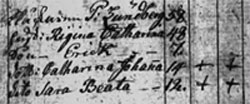 P. Lundberg 58.
Regina Catharina 48
Erick 7.
Catharina Johana 14 + +
Dito Sara Beata 12. + +